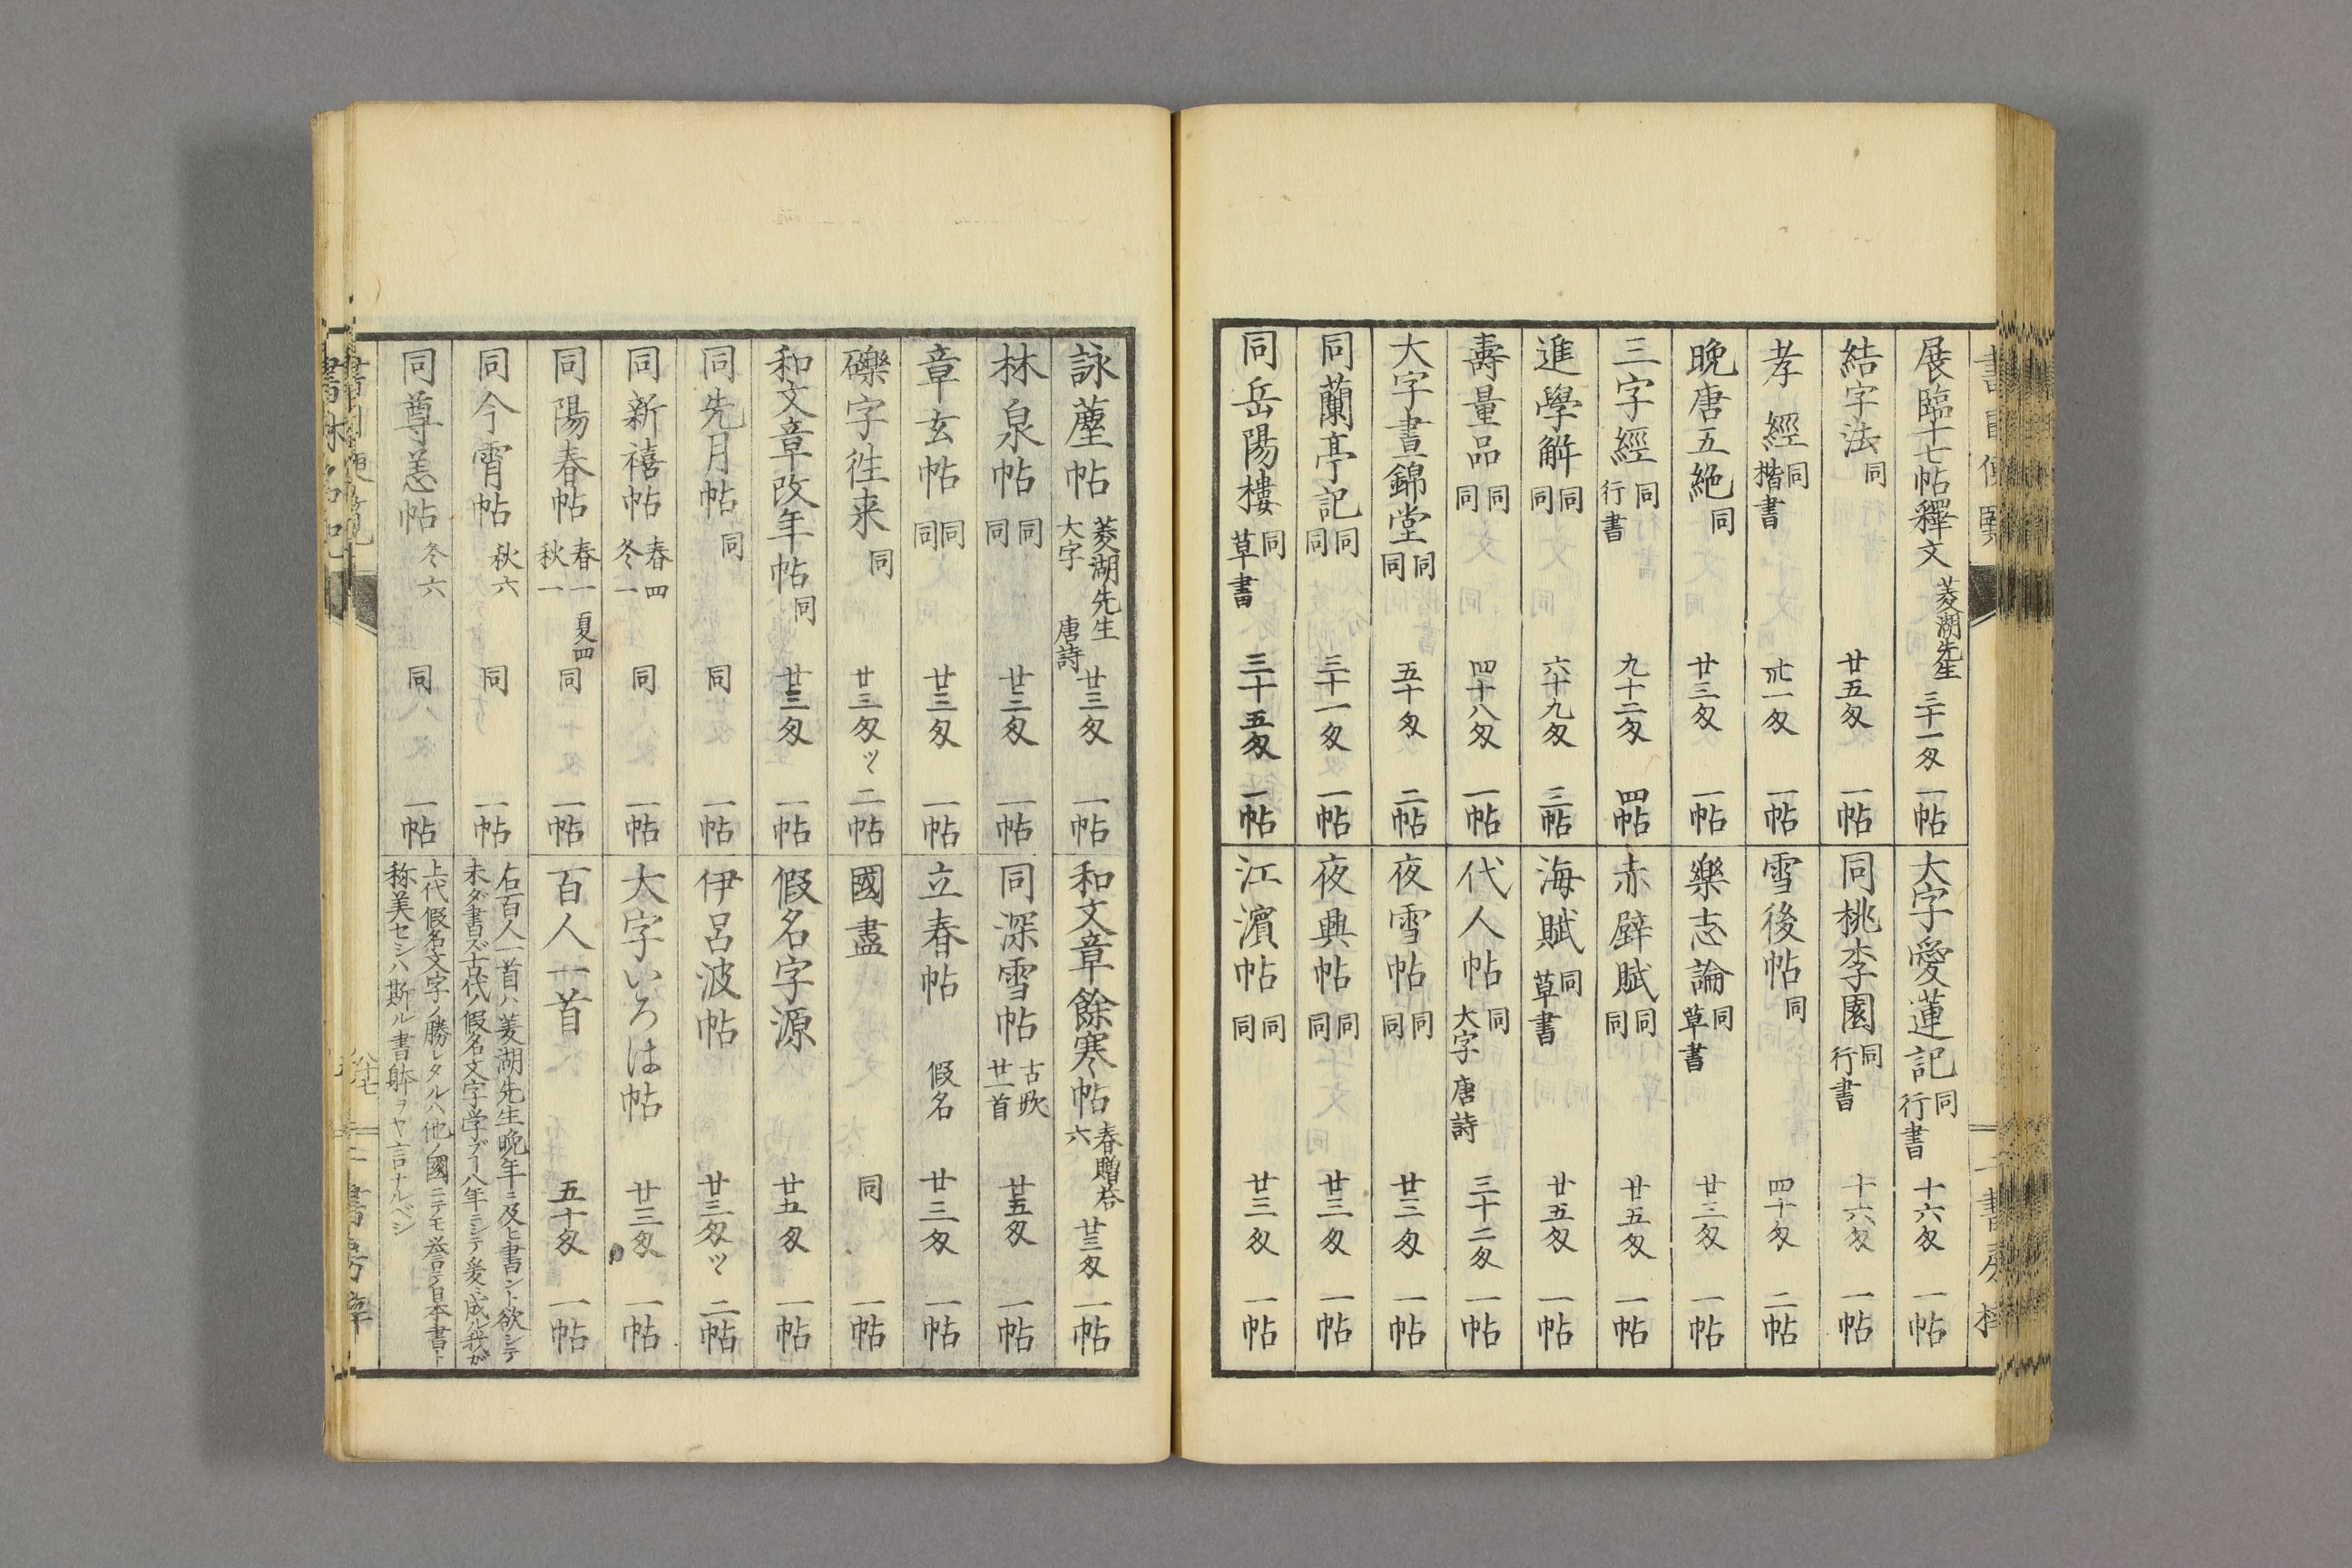 展臨十七帖釋文 菱湖先生 三十一匁 一帖
結字法 同 廿五匁 一帖
孝經 同 楷書 卅一匁 一帖
晩唐五絶 同 廿三匁 一帖
三字經 同 行書 九十二匁 四帖
進學解 同 同 六十九匁 三帖
壽量品 同 同 四十八匁 一帖
大字晝錦堂 同 同 五十匁 二帖
同蘭亭記 同 同 三十一匁 一帖
同岳陽樓 同 草書 三十五匁 一帖
大字愛蓮記 同 行書 十六匁 一帖
同桃李園 同 行書 十六匁 一帖
雪後帖 同 四十匁 二帖
樂志論 同 草書 廿三匁 一帖
赤壁賦 同 同 廿五匁 一帖
海賦 同 草書 廿五匁 一帖
代人帖 同 大字 唐詩 三十二匁 一帖
夜雪帖 同 同 廿三匁 一帖
夜興帖 同 同 廿三匁 一帖
江濱帖 同 同 廿三匁 一帖
詠蘆帖 菱湖先生 大字 唐詩 廿三匁 一帖
林泉帖 同 同 廿三匁 一帖
章玄帖 同 同 廿三匁 一帖
礫字徃来 同 廿三匁ツヽ 二帖
和文章改年帖 同 廿三匁 一帖
同先月帖 同 同 一帖
同新禧帖 春四 冬一 同 一帖
同陽春帖 春一 夏四 秋一 同 一帖
同今霄帖 秋六 同 一帖
同尊恙帖 冬六 同 一帖
和文章餘寒帖 春贈答 六 廿三匁 一帖
同深雪帖 古歌 廿一首 廿五匁 一帖
立春帖 假名 廿三匁 一帖
國盡 同 一帖
假名字源 廿五匁 一帖
伊呂波帖 廿三匁ツヽ 二帖
大字いろは帖 廿三匁 一帖
百人一首 五十匁 一帖
右百人一首ハ菱湖先生晩年ニ及ヒ書ント欲シテ
未ダ書ズ古代ノ假名文字学ブー八年ニシテ爰ニ成ル我ガ
上代假名文字ノ勝レタルハ他ノ國ニテモ誉テ日本書ト
称美セシハ斯ル書躰ヲヤ言ナルベシ